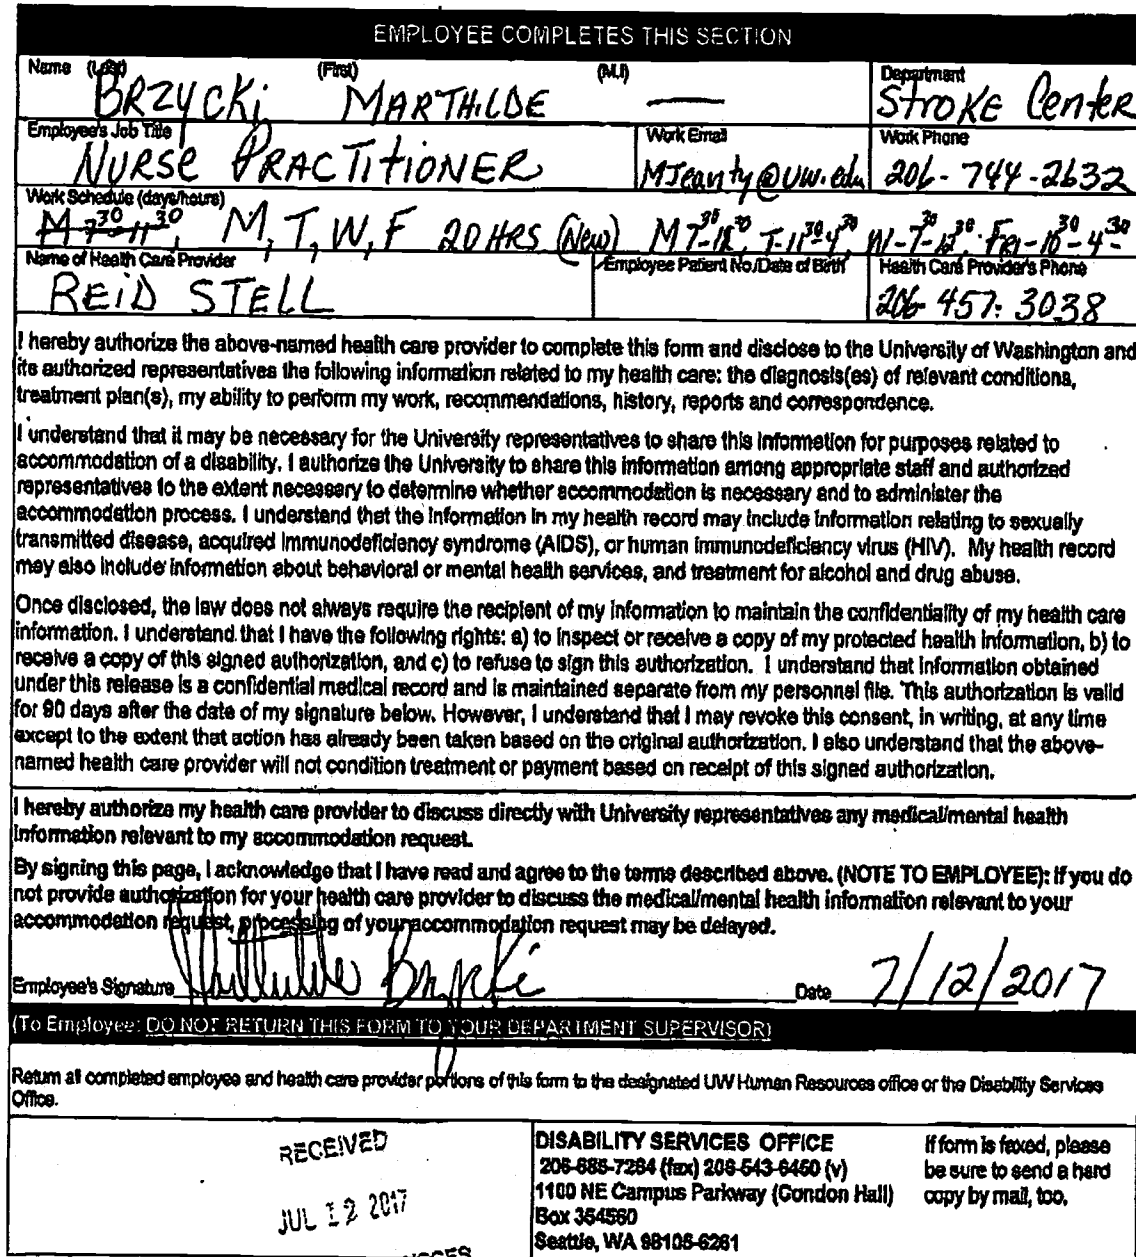 EMPLOYEE COMPLETES THIS SECTION
Name (Last) (First) (M.I) Department
BRZYCKi MARTHILDE — StroKE Center
Employee's Job Title Work Email Work Phone
NURSE PRACTITIONER MJeanty@uw.edu 206-744-2632
Work Schedule (days/hours)
M 7³⁰-11³⁰, M, T, W, F 20 HRS (New) M 7³⁰-12³⁰, T-11³⁰-4³⁰, W-7³⁰-12³⁰. Fri-10³⁰-4³⁰
Name of Health Care Provider Employee Patient No./Date of Birth Health Care Provider's Phone
REiD STELL 206-457-3038
I hereby authorize the above-named health care provider to complete this form and disclose to the University of Washington and
its authorized representatives the following information related to my health care: the diagnosis(es) of relevant conditions,
treatment plan(s), my ability to perform my work, recommendations, history, reports and correspondence.
I understand that it may be necessary for the University representatives to share this information for purposes related to
accommodation of a disability. I authorize the University to share this information among appropriate staff and authorized
representatives to the extent necessary to determine whether accommodation is necessary and to administer the
accommodation process. I understand that the information in my health record may include information relating to sexually
transmitted disease, acquired immunodeficiency syndrome (AIDS), or human immunodeficiency virus (HIV). My health record
may also include information about behavioral or mental health services, and treatment for alcohol and drug abuse.
Once disclosed, the law does not always require the recipient of my information to maintain the confidentiality of my health care
information. I understand that I have the following rights: a) to inspect or receive a copy of my protected health information, b) to
receive a copy of this signed authorization, and c) to refuse to sign this authorization. I understand that information obtained
under this release is a confidential medical record and is maintained separate from my personnel file. This authorization is valid
for 90 days after the date of my signature below. However, I understand that I may revoke this consent, in writing, at any time
except to the extent that action has already been taken based on the original authorization. I also understand that the above-
named health care provider will not condition treatment or payment based on receipt of this signed authorization.
I hereby authorize my health care provider to discuss directly with University representatives any medical/mental health
information relevant to my accommodation request.
By signing this page, I acknowledge that I have read and agree to the terms described above. (NOTE TO EMPLOYEE): If you do
not provide authorization for your health care provider to discuss the medical/mental health information relevant to your
accommodation request, processing of your accommodation request may be delayed.
Employee's Signature Marthilde Brzycki Date 7/12/2017
(To Employee: DO NOT RETURN THIS FORM TO YOUR DEPARTMENT SUPERVISOR)
Return all completed employee and health care provider portions of this form to the designated UW Human Resources office or the Disability Services
Office.
RECEIVED
JUL 12 2017
DISABILITY SERVICES OFFICE
206-685-7264 (fax) 206-543-6450 (v)
1100 NE Campus Parkway (Condon Hall)
Box 354560
Seattle, WA 98105-6261
If form is faxed, please
be sure to send a hard
copy by mail, too.